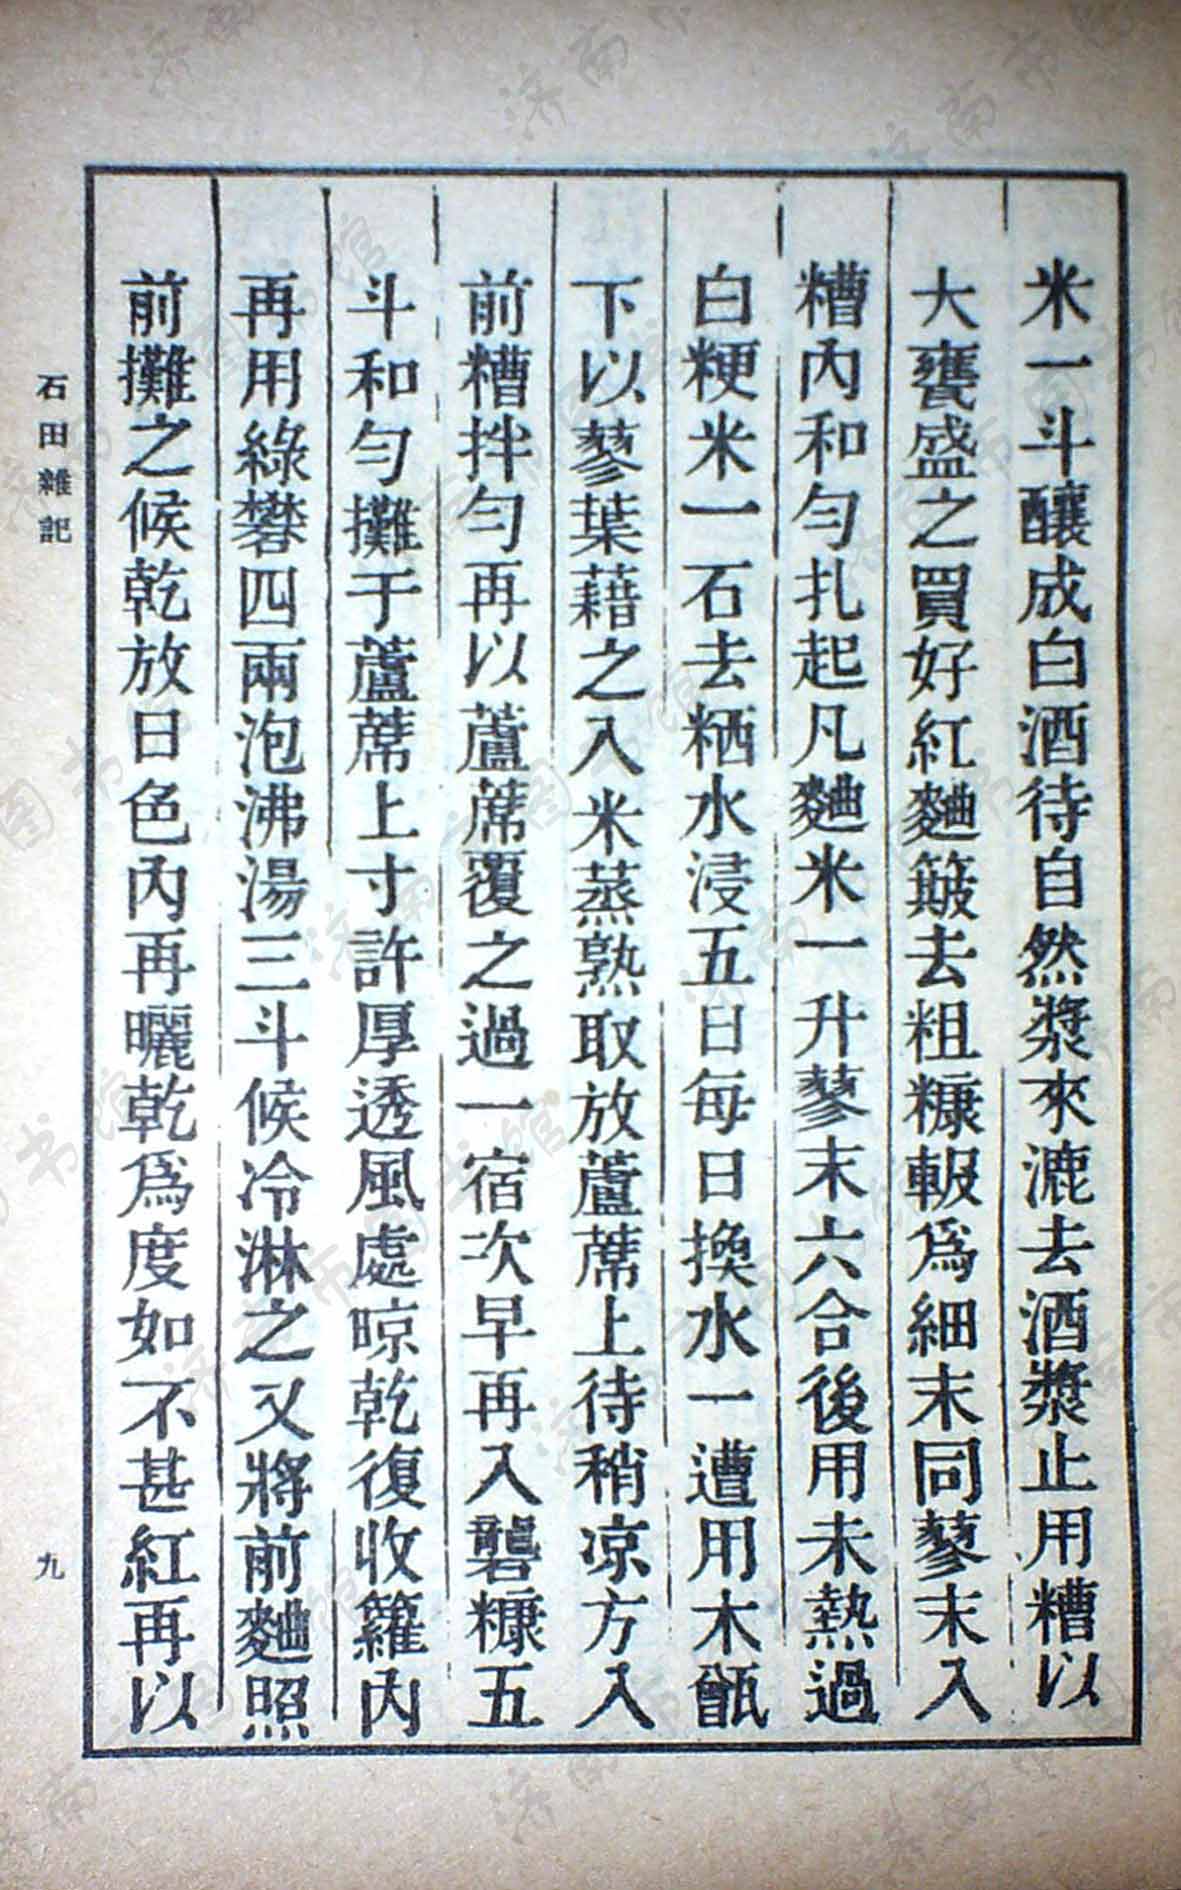 米一斗釀成白酒待自然漿來漉去酒漿止用糟以
大甕盛之買好紅麯簸去粗糠報爲細末同蓼末入
糟內和勻扎起凡麯米一升蓼末六合後用未熱過
白粳米一石去粞水浸五日每日換水一遭用木甑
下以蓼葉藉之入米蒸熟取放蘆蓆上待稍凉方入
前糟拌勻再以蘆蓆覆之過一宿次早再入礱糠五
斗和勻攤于蘆蓆上寸許厚透風處晾乾復收籮內
再用綠礬四兩泡沸湯三斗候冷淋之又將前麯照
前攤之候乾放日色內再曬乾爲度如不甚紅再以
石田雜記
九
济南市图书馆